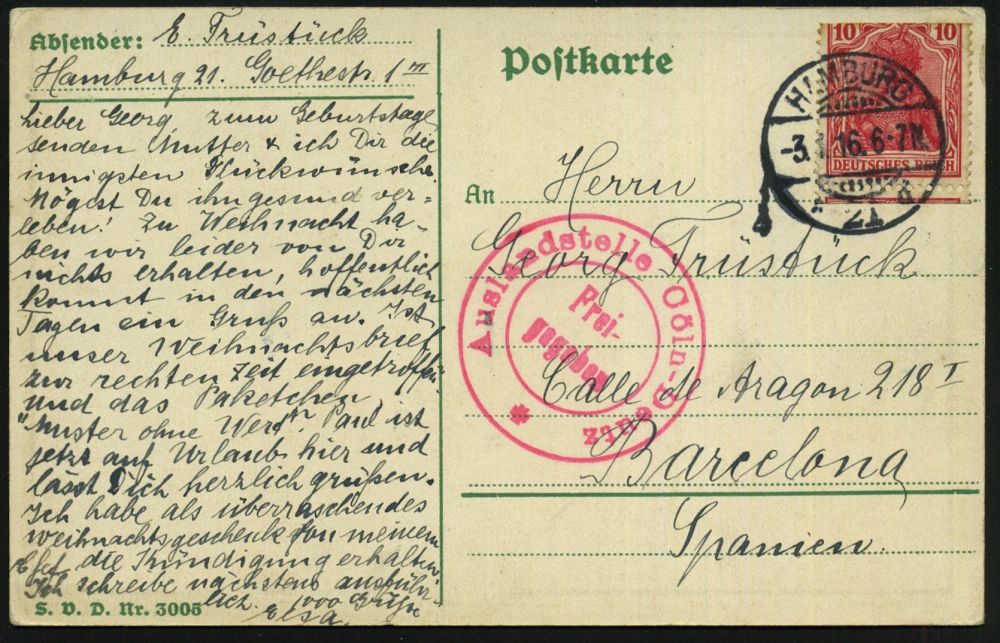 Absender: E. Früstück
Hamburg 21. Goethestr. 1 III
Lieber Georg zum Geburtstage
senden Mutter & ich Dir die
innigsten Glückwünsche.
Mögest Du ihn gesund ver=
leben! Zu Weihnacht ha=
ben wir leider von Dir
nichts erhalten, hoffentlich
kommt in den nächsten
Tagen ein Gruß an. Ist
unser Weihnachtsbrief
zur rechten Zeit eingetroffen
und das Paketchen
"Muster ohne Wert". Paul ist
jetzt auf Urlaub hier und
lässt Dich herzlich grüßen.
Ich habe als überraschendes
Weihnachtsgeschenk von meinem
Chef die Kündigung erhalten.
Ich schreibe nächstens ausführ=
lich. 1000 Grüße
Elsa.
S. V. D. Nr. 3005
Postkarte
10 10
DEUTSCHES REICH
HAMBURG
-3.1.16. 6-7N.
21
An Herrn
Georg Früstück
Calle de Aragon 218 I
Barcelona
Spanien.
Auslandstelle Cöln-Deutz
Frei-
gegeben